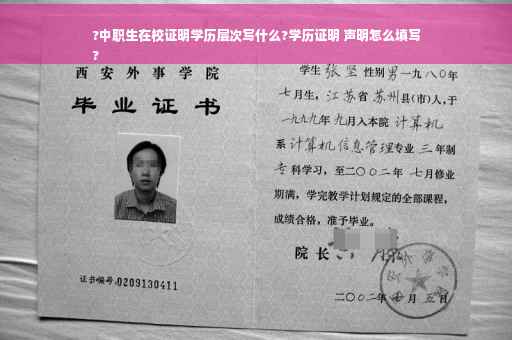 ?中职生在校证明学历层次写什么?学历证明 声明怎么填写
?
西安外事学院
毕业证书
证书编号:0209130411
学生 张坚 性别男一九八〇年
七月生,江苏省苏州县(市)人,于
一九九九年九月入本院计算机
系计算机信息管理专业三年制
专科学习,至二〇〇二年七月修业
期满,学完教学计划规定的全部课程,
成绩合格,准予毕业。
院长
二〇〇二年 月五日